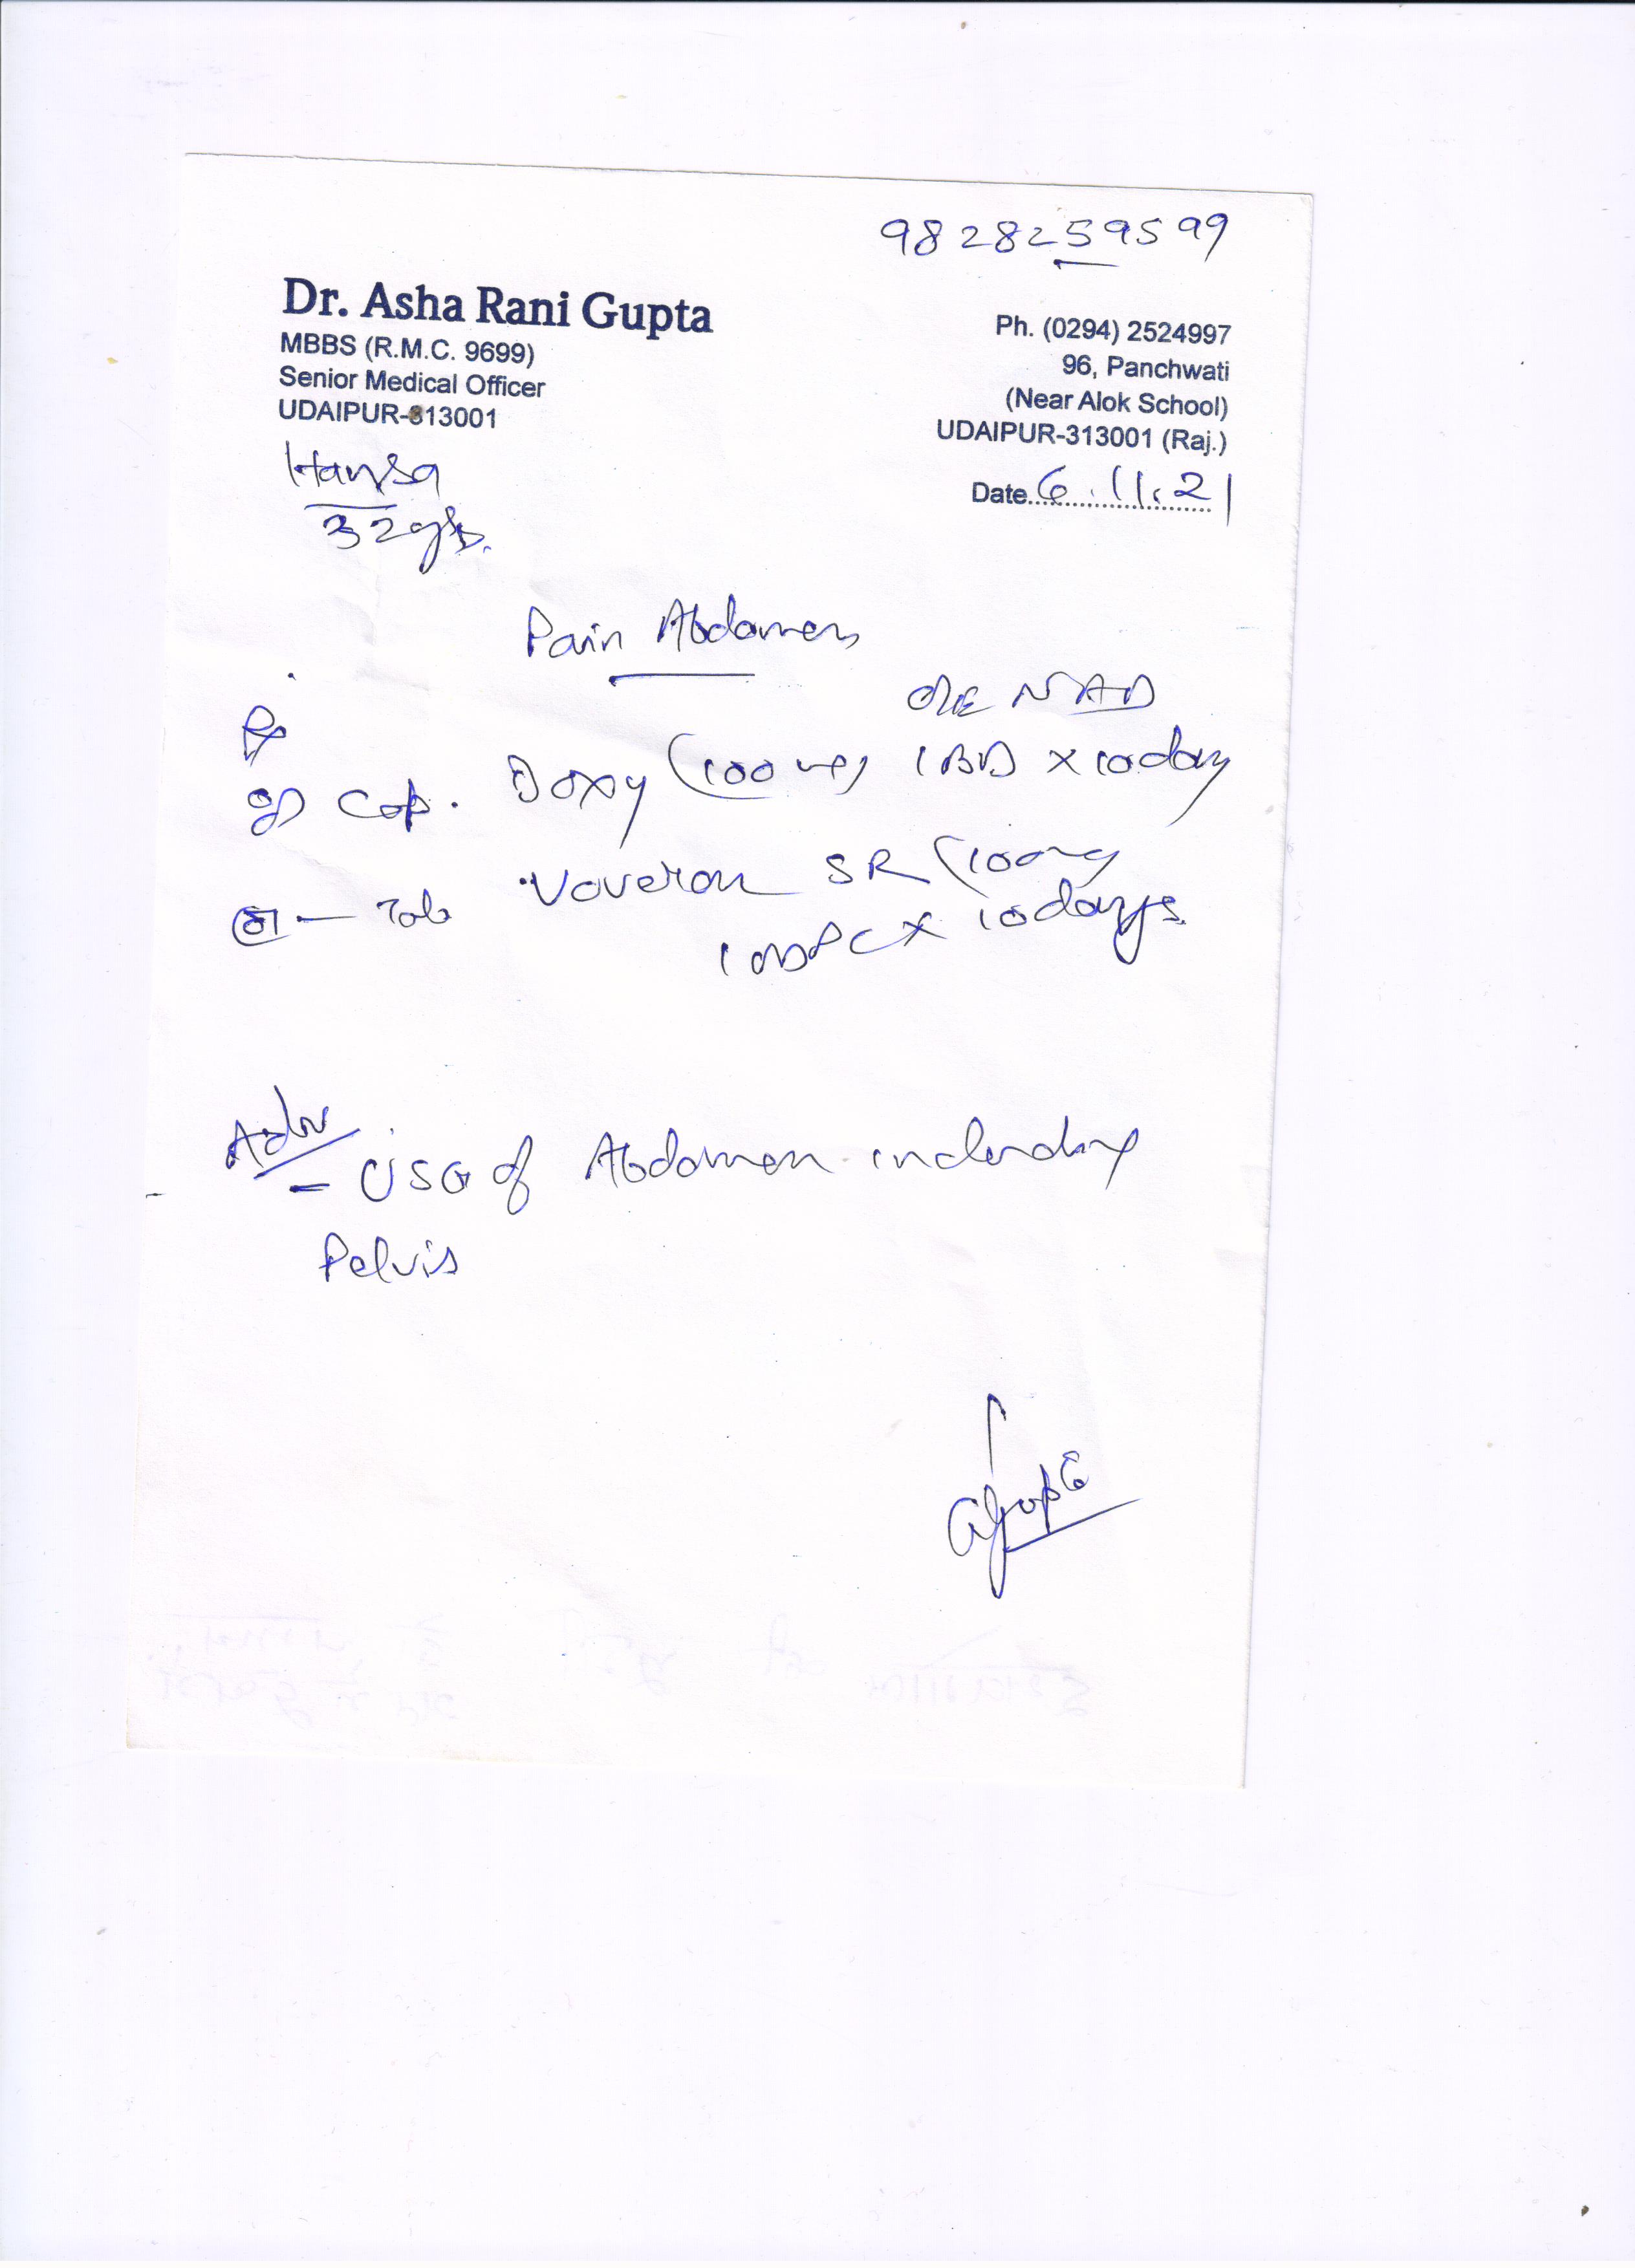 9828259599
Dr. Asha Rani Gupta
MBBS (R.M.C. 9699)
Senior Medical Officer
UDAIPUR-313001
Ph. (0294) 2524997
96, Panchwati
(Near Alok School)
UDAIPUR-313001 (Raj.)
Date 6.11.21
Hansa
32 yrs.
Pain Abdomen
O/E NAD
Rx
Cap. Doxy (100 mg) 1 BD x 10 day
Tab Voveron SR (100mg
1 OD PC x 10 days.
Adv
- USG of Abdomen including
Pelvis
Gupta